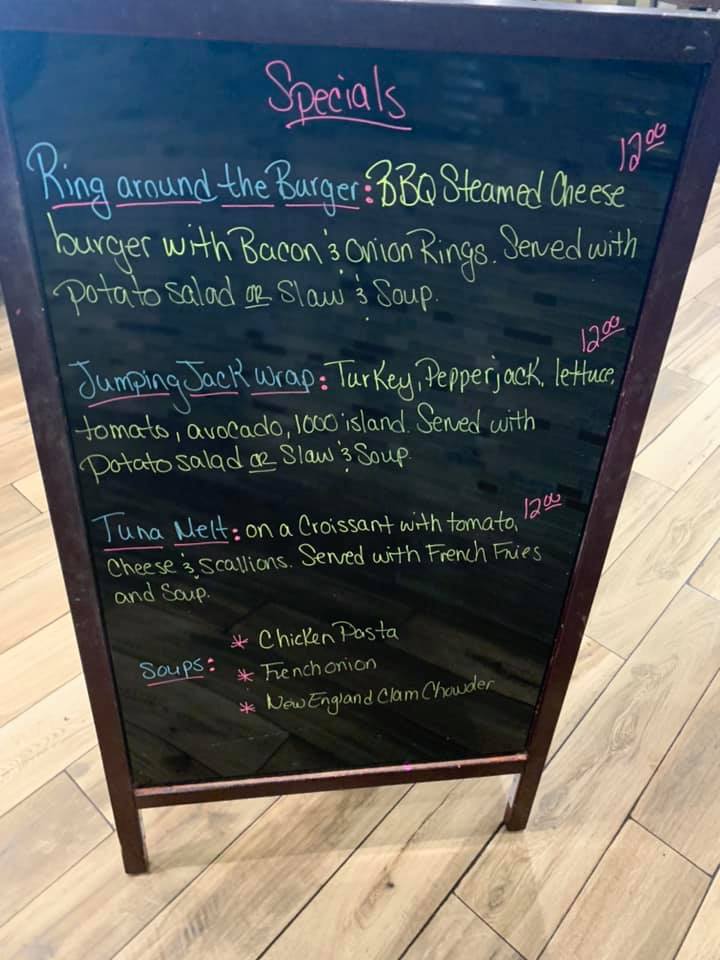 Specials
12.00
Ring around the Burger: BBQ Steamed Cheese
burger with Bacon & Onion Rings. Served with
potato salad or Slaw & Soup.
12.00
Jumping Jack Wrap: Turkey, Pepperjack, lettuce,
tomato, avocado, 1000 island. Served with
Potato salad or Slaw & Soup.
12.00
Tuna Melt: on a Croissant with tomato,
Cheese & Scallions. Served with French Fries
and Soup.
Soups:
* Chicken Pasta
* French onion
* New England Clam Chowder